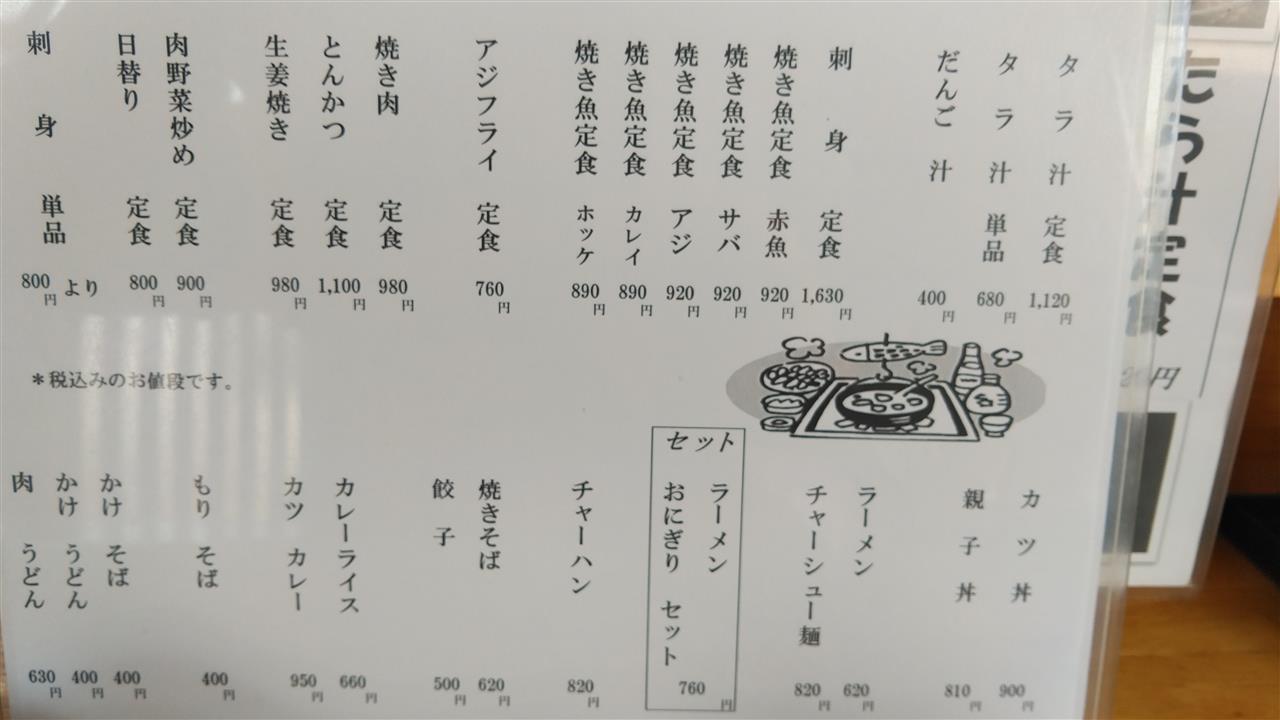 タラ汁 定食 1,120円
タラ汁 単品 680円
だんご汁 400円
刺身 定食 1,630円
焼き魚定食 赤魚 920円
焼き魚定食 サバ 920円
焼き魚定食 アジ 920円
焼き魚定食 カレイ 890円
焼き魚定食 ホッケ 890円
アジフライ 定食 760円
焼き肉 定食 980円
とんかつ 定食 1,100円
生姜焼き 定食 980円
肉野菜炒め 定食 900円
日替り 定食 800円
刺身 単品 800円より
*税込みのお値段です。
カツ丼 900円
親子丼 810円
ラーメン 620円
チャーシュー麺 820円
セット
ラーメン
おにぎり セット 760円
チャーハン 820円
焼きそば 620円
餃子 500円
カレーライス 660円
カツ カレー 950円
もり そば 400円
かけ そば 400円
かけ うどん 400円
肉 うどん 630円
たら汁定食
円